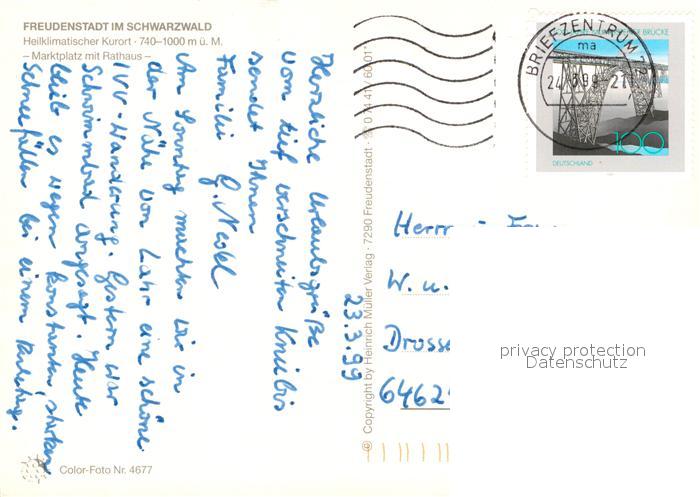 FREUDENSTADT IM SCHWARZWALD
Heilklimatischer Kurort · 740–1000 m ü. M.
– Marktplatz mit Rathaus –
23.3.99
Herzliche Urlaubsgrüße
vom tief verschneiten Kniebis
sendet Ihnen
Familie G.
Am Sonntag machten wir in
der Nähe von Lahr eine schöne
IVV-Wanderung. Gestern war
Schwimmbad angesagt. Heute
bleibt es wegen konstanten starken
Schneefällen bei einem
Color-Foto Nr. 4677
© Copyright by Heinrich Müller Verlag · 7290 Freudenstadt · ☏ 0 74 41 / 60 01*
BRIEFZENTRUM
ma
100
DEUTSCHLAND
Herrn
W. u.
Drosse
6462
privacy protection
Datenschutz